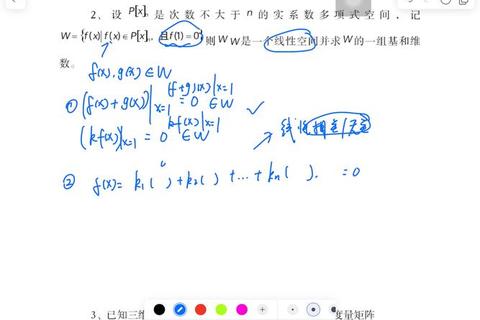 2、设 P[x]ₙ 是次数不大于 n 的实系数多项式空间．记
W={f(x)|f(x)∈P[x]ₙ, 且f(1)=0},则 W W是一个线性空间并求W的一组基和维
数。
f(x), g(x) ∈ W
(f+g)(x)|x=1
① (f(x)+g(x))|x=1 = 0 ∈W ✓
kf(x)|x=1
(kf(x))|x=1 = 0 ∈W
线性相关/无关
② f(x)= k₁( )+k₂( )+…+kₙ( ). =0
3、已知三维
度量矩阵